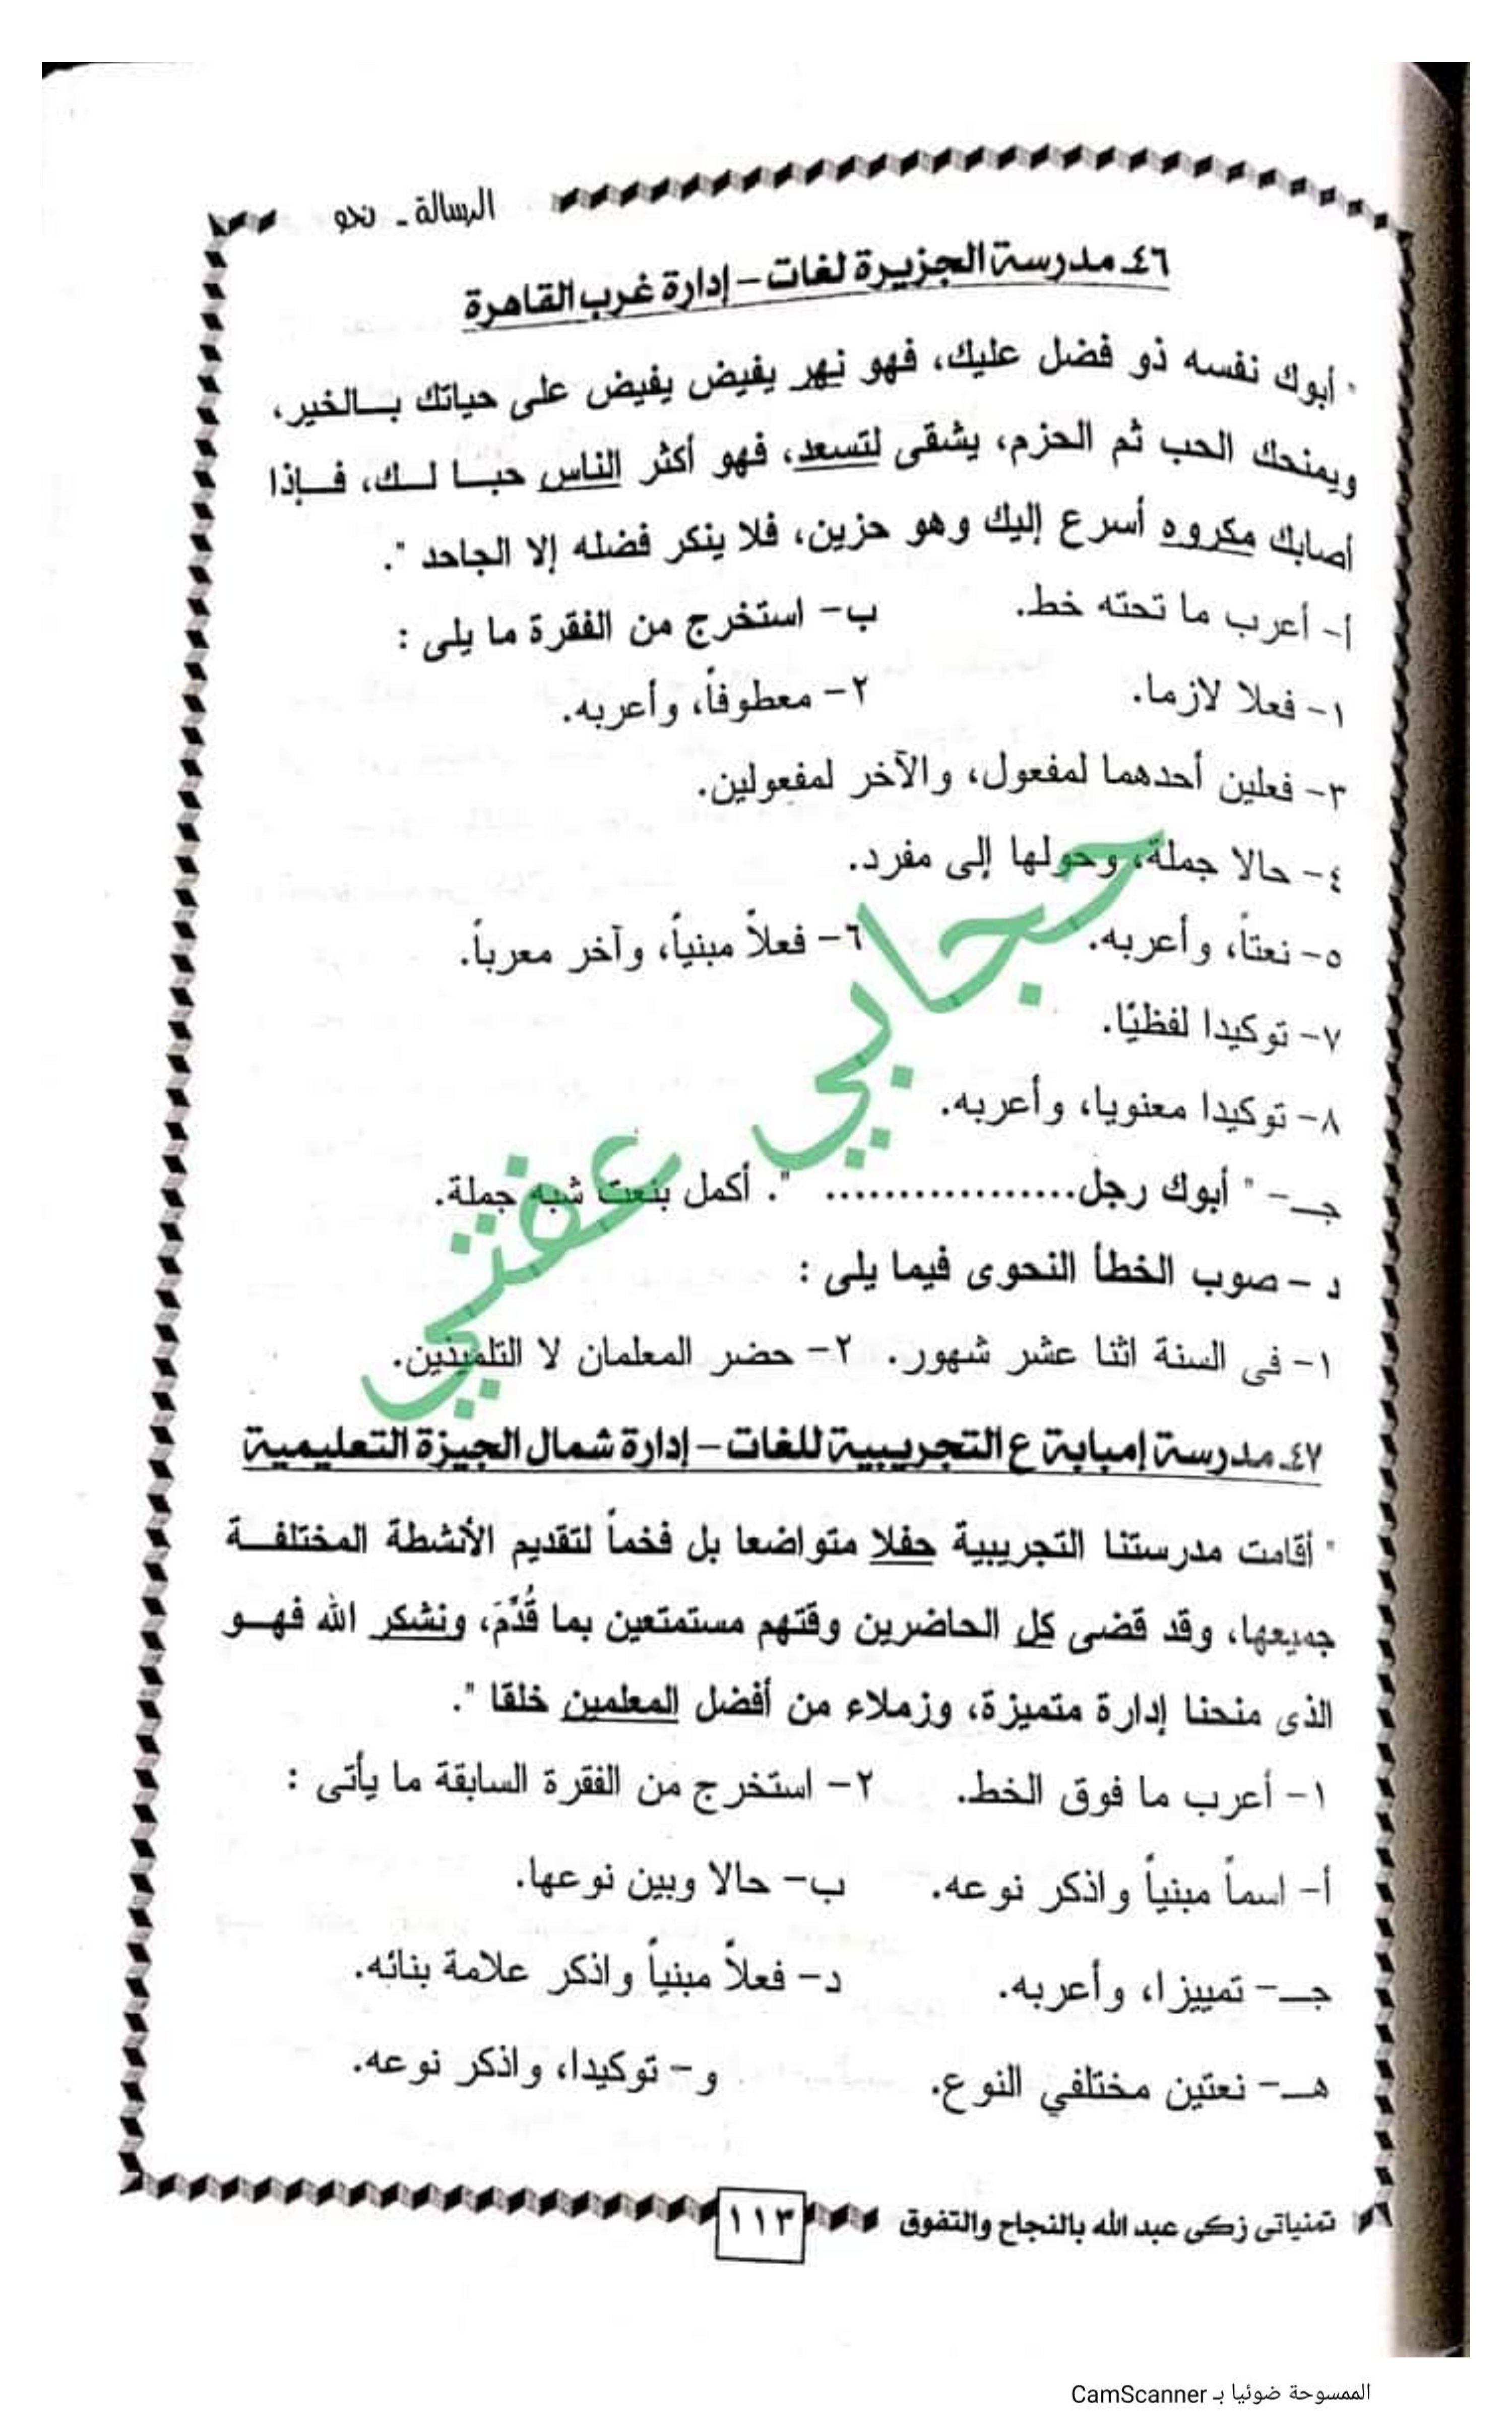 الرسالة ـ نحو
٤٦ـ مدرسة الجزيرة لغات – إدارة غرب القاهرة
" أبوك نفسه ذو فضل عليك، فهو نهر يفيض يفيض على حياتك بـالخير،
ويمنحك الحب ثم الحزم، يشقى لتسعد، فهو أكثر الناس حبـا لـك، فـإذا
أصابك مكروه أسرع إليك وهو حزين، فلا ينكر فضله إلا الجاحد ".
أ- أعرب ما تحته خط. ب- استخرج من الفقرة ما يلى :
١- فعلا لازما. ٢- معطوفاً، وأعربه.
٣- فعلين أحدهما لمفعول، والآخر لمفعولين.
٤- حالا جملة، وحولها إلى مفرد.
٥- نعتاً، وأعربه. ٦- فعلاً مبنياً، وآخر معرباً.
٧- توكيدا لفظيًا.
٨- توكيدا معنويا، وأعربه.
جـ- " أبوك رجل................. ". أكمل بنعت شبه جملة.
د – صوب الخطأ النحوى فيما يلى :
١- فى السنة اثنا عشر شهور. ٢- حضر المعلمان لا التلميذين.
حجابي عفتي
٤٧ـ مدرسة إمبابة ع التجريبية للغات – إدارة شمال الجيزة التعليمية
" أقامت مدرستنا التجريبية حفلا متواضعا بل فخماً لتقديم الأنشطة المختلفـة
جميعها، وقد قضى كل الحاضرين وقتهم مستمتعين بما قُدِّمَ، ونشكر الله فهـو
الذى منحنا إدارة متميزة، وزملاء من أفضل المعلمين خلقا ".
١- أعرب ما فوق الخط. ٢- استخرج من الفقرة السابقة ما يأتى :
أ- اسماً مبنياً واذكر نوعه. ب- حالا وبين نوعها.
جـ- تمييزا، وأعربه. د- فعلاً مبنياً واذكر علامة بنائه.
هـ- نعتين مختلفي النوع. و- توكيدا، واذكر نوعه.
تمنياتى زكى عبد الله بالنجاح والتفوق ١١٣
الممسوحة ضوئيا بـ CamScanner